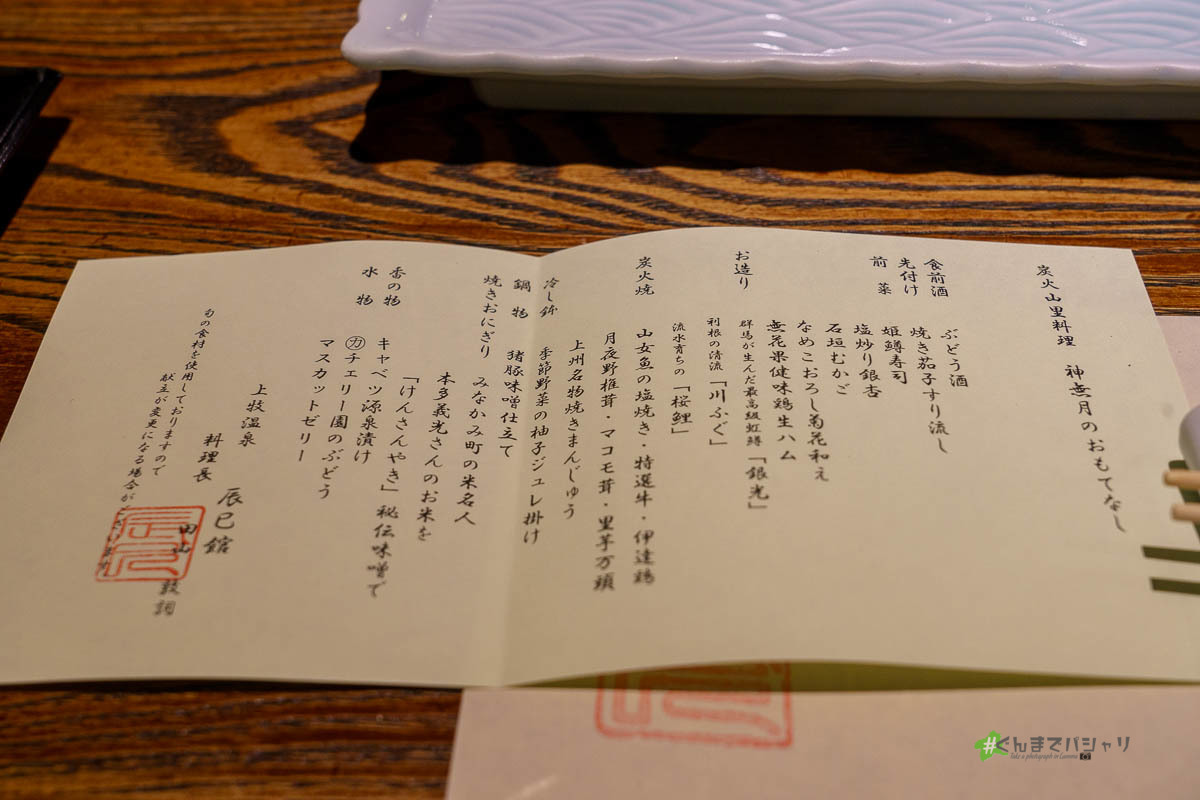 炭火山里料理　神無月のおもてなし
食前酒　ぶどう酒
先付け　焼き茄子すり流し
前菜　姫鱒寿司
塩炒り銀杏
石垣むかご
なめこおろし菊花和え
無花果健味鶏生ハム
お造り　群馬が生んだ最高級虹鱒「銀光」
利根の清流「川ふぐ」
流水育ちの「桜鯉」
炭火焼　山女魚の塩焼き・特選牛・伊達鶏
月夜野椎茸・マコモ茸・里芋万頭
上州名物焼きまんじゅう
冷し鉢　季節野菜の柚子ジュレ掛け
鍋物　猪豚味噌仕立て
焼きおにぎり　みなかみ町の米名人
本多義光さんのお米を
「けんさんやき」秘伝味噌で
香の物　キャベツ源泉漬け
水物　㋕チェリー園のぶどう
マスカットゼリー
上牧温泉　辰巳館
料理長　田山
旬の食材を使用しておりますので
献立が変更になる場合がございます
#ぐんまでパシャリ
Take a photograph in Gunma